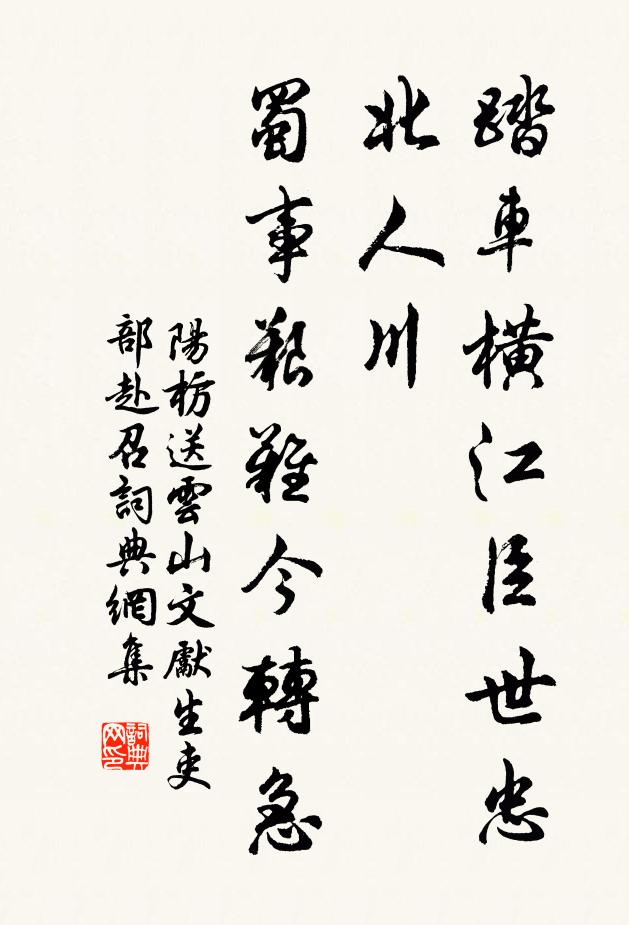 踏車橫江臣世忠
北人川
蜀事艱難今轉急
陽枋送雲山文獻生吏
部赴召詞典網集
詞典
网印